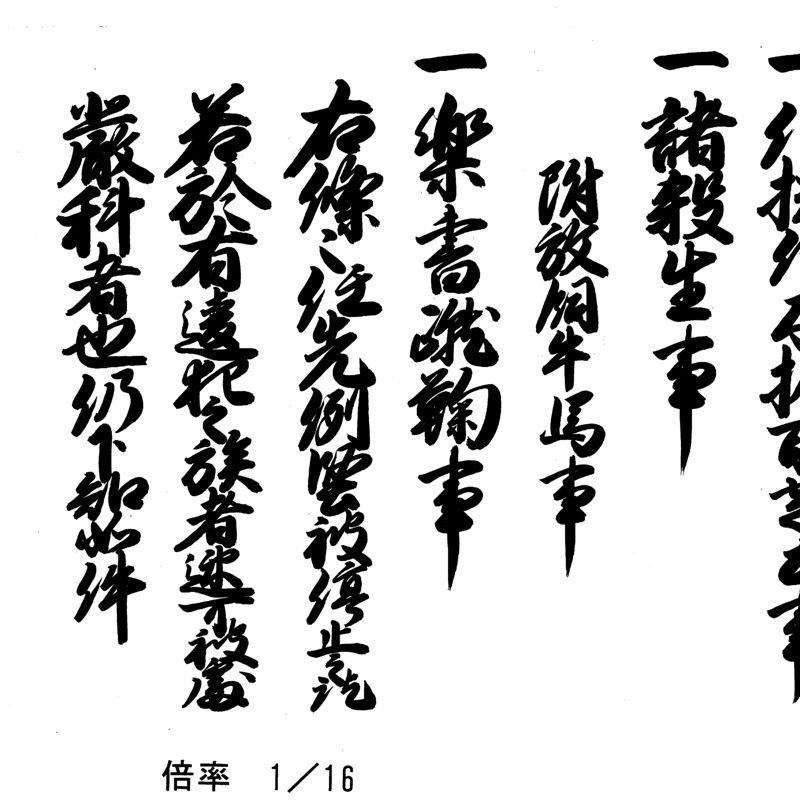 一諸殺生事
附放飼牛馬事
一楽書蹴鞠事
右條〻任先例堅被停止訖
若於有違犯之族者速可被處
嚴科者也仍下知如件
倍率 1/16